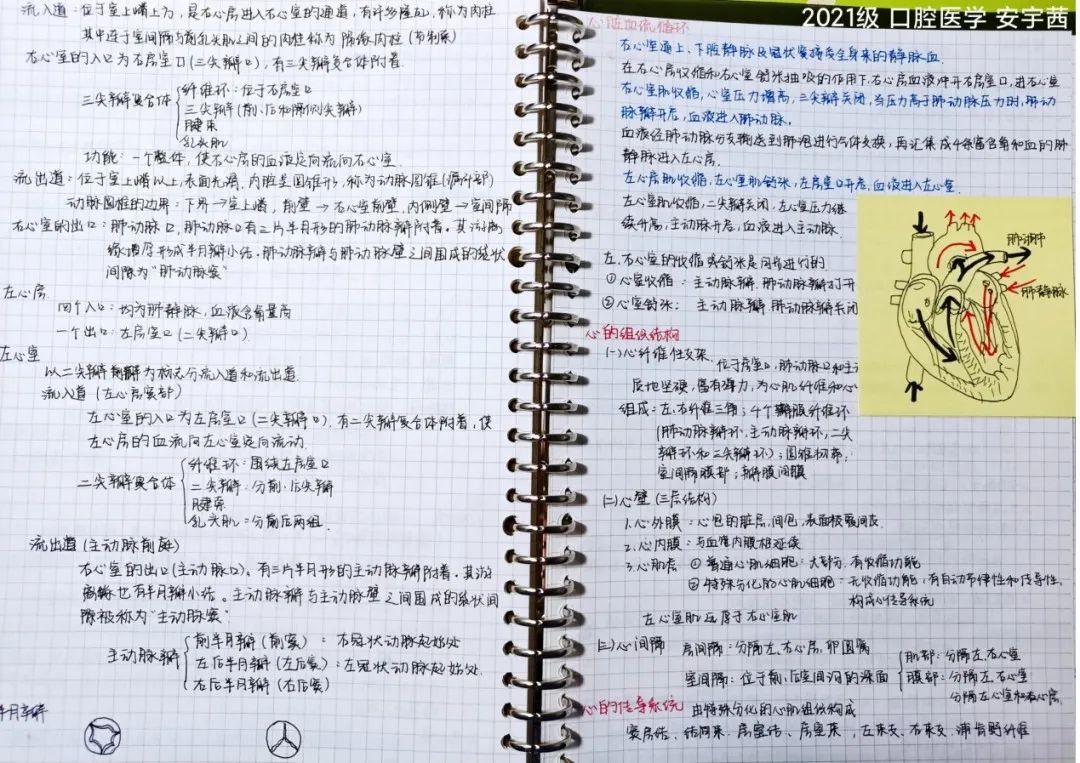 流入道：位于室上嵴上方，是右心房进入右心室的通道，有许多隆起，称为肉柱
其中连于室间隔与前乳头肌之间的肉柱称为 隔缘肉柱（节制索）
右心室的入口为右房室口（三尖瓣口），有三尖瓣复合体附着.
三尖瓣复合体
纤维环：位于右房室口
三尖瓣（前、后和隔侧尖瓣）
腱索
乳头肌
功能：一个整体，使右心房的血液定向流向右心室.
流出道：位于室上嵴以上，表面光滑，内腔呈圆锥形，称为动脉圆锥（漏斗部）
动脉圆锥的边界：下界→室上嵴，前壁→右心室前壁，内侧壁→室间隔
右心室的出口：肺动脉口，肺动脉口有三片半月形的肺动脉瓣附着，其游离
缘增厚形成半月瓣小结.肺动脉瓣与肺动脉壁之间围成的袋状
间隙为“肺动脉窦”
左心房
四个入口：均为肺静脉，血液含氧量高
一个出口：左房室口（二尖瓣口）
左心室
以二尖瓣前瓣为标志分流入道和流出道.
流入道（左心房窦部）
左心室的入口为左房室口（二尖瓣口），有二尖瓣复合体附着，使
左心房的血流向左心室定向流动
二尖瓣复合体
纤维环：围绕左房室口
二尖瓣：分前、后尖瓣
腱索
乳头肌：分前后两组.
流出道（主动脉前庭）
右心室的出口（主动脉口）.有三片半月形的主动脉瓣附着.其游
离缘也有半月瓣小结.主动脉瓣与主动脉壁之间围成的袋状间
隙被称为“主动脉窦”
主动脉瓣
前半月瓣（前窦）：右冠状动脉起始处
左后半月瓣（左后窦）：左冠状动脉起始处.
右后半月瓣（右后窦）
半月瓣
2021级 口腔医学 安宇茜
心脏血流循环
右心室通上、下腔静脉及冠状窦接受全身来的静脉血.
在右心房收缩和右心室舒张抽吸的作用下，右心房血液冲开右房室口，进右心室
右心室肌收缩，心室压力增高，三尖瓣关闭，当压力高于肺动脉压力时，肺动
脉瓣开启，血液进入肺动脉.
血液经肺动脉分支输送到肺泡进行气体交换，再汇集成 富含氧和血的肺
静脉进入左心房.
左心房肌收缩，左心室肌舒张，左房室口开启，血液进入左心室.
左心室肌收缩，二尖瓣关闭.左心室压力继
续升高，主动脉开启，血液进入主动脉.
左、右心室的收缩或舒张是同步进行的
①心室收缩：主动脉瓣、肺动脉瓣打开
②心室舒张：主动脉瓣、肺动脉瓣关闭
肺动脉
肺静脉
心的组织结构
(一)心纤维性支架.位于房室口、肺动脉口和主
质地坚硬，富有弹力，为心肌纤维和心
组成：左、右纤维三角；4个瓣膜纤维环
(肺动脉瓣环、主动脉瓣环、二尖
瓣环和三尖瓣环)；圆锥韧带；
室间隔膜部；瓣膜间隔
(二)心壁（三层结构）
1.心外膜：心包的脏层，间包，表面被覆间皮.
2.心内膜：与血管内膜相延续
3.心肌层 ①普通心肌细胞：大部分，有收缩功能
②特殊分化的心肌细胞：无收缩功能，有自动节律性和传导性，
构成心传导系统
左心室肌应厚于右心室肌
(三)心间隔
房间隔：分隔左、右心房，卵圆窝
室间隔：位于前、后室间沟的深面
肌部：分隔左、右心室
膜部：分隔左、右心室
分隔左心室和右心房.
心的传导系统 由特殊分化的心肌细胞构成
窦房结、结间束、房室结、房室束，左束支、右束支、浦肯野纤维